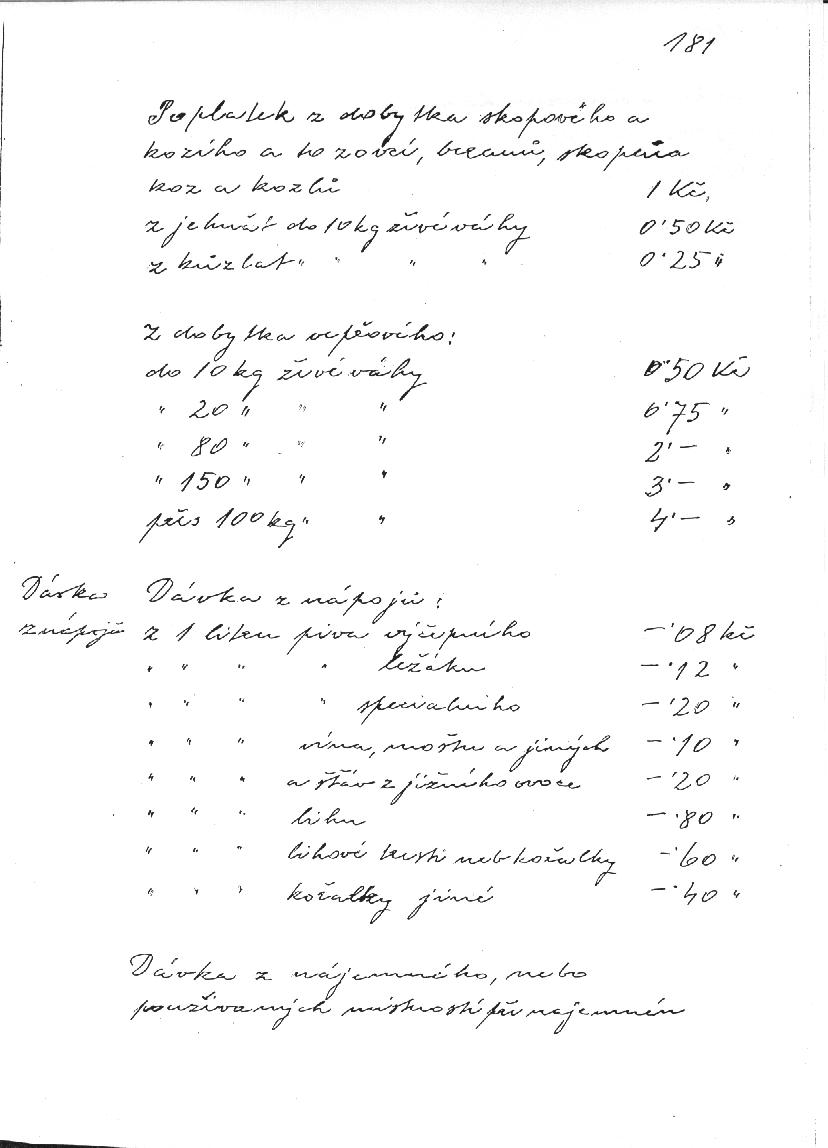 181
Poplatek z dobytka skopového a
kozího a to z ovcí, beranů, skopců a
koz a kozlů 1 Kč,
z jehňat do 10 kg živé váhy 0'50 Kč
z kůzlat " " " " 0'25 "
Z dobytka vepřového:
do 10 kg živé váhy 0'50 Kč
" 20 " " " 0'75 "
" 80 " " " 2'— "
" 150 " " " 3'— "
přes 100 kg " " 4'— "
Dávka z nápojů
Dávka z nápojů:
z 1 litru piva výčepního —'08 Kč
" " " " ležáku —'12 "
" " " " specialního —'20 "
" " " vína, moštu a jiných —'10 "
" " " a šťáv z jižního ovoce —'20 "
" " " lihu —'80 "
" " " lihové tresti neb kořalky —'60 "
" " " kořalky jiné —'40 "
Dávka z nájemného, nebo
používaných místností při najemném